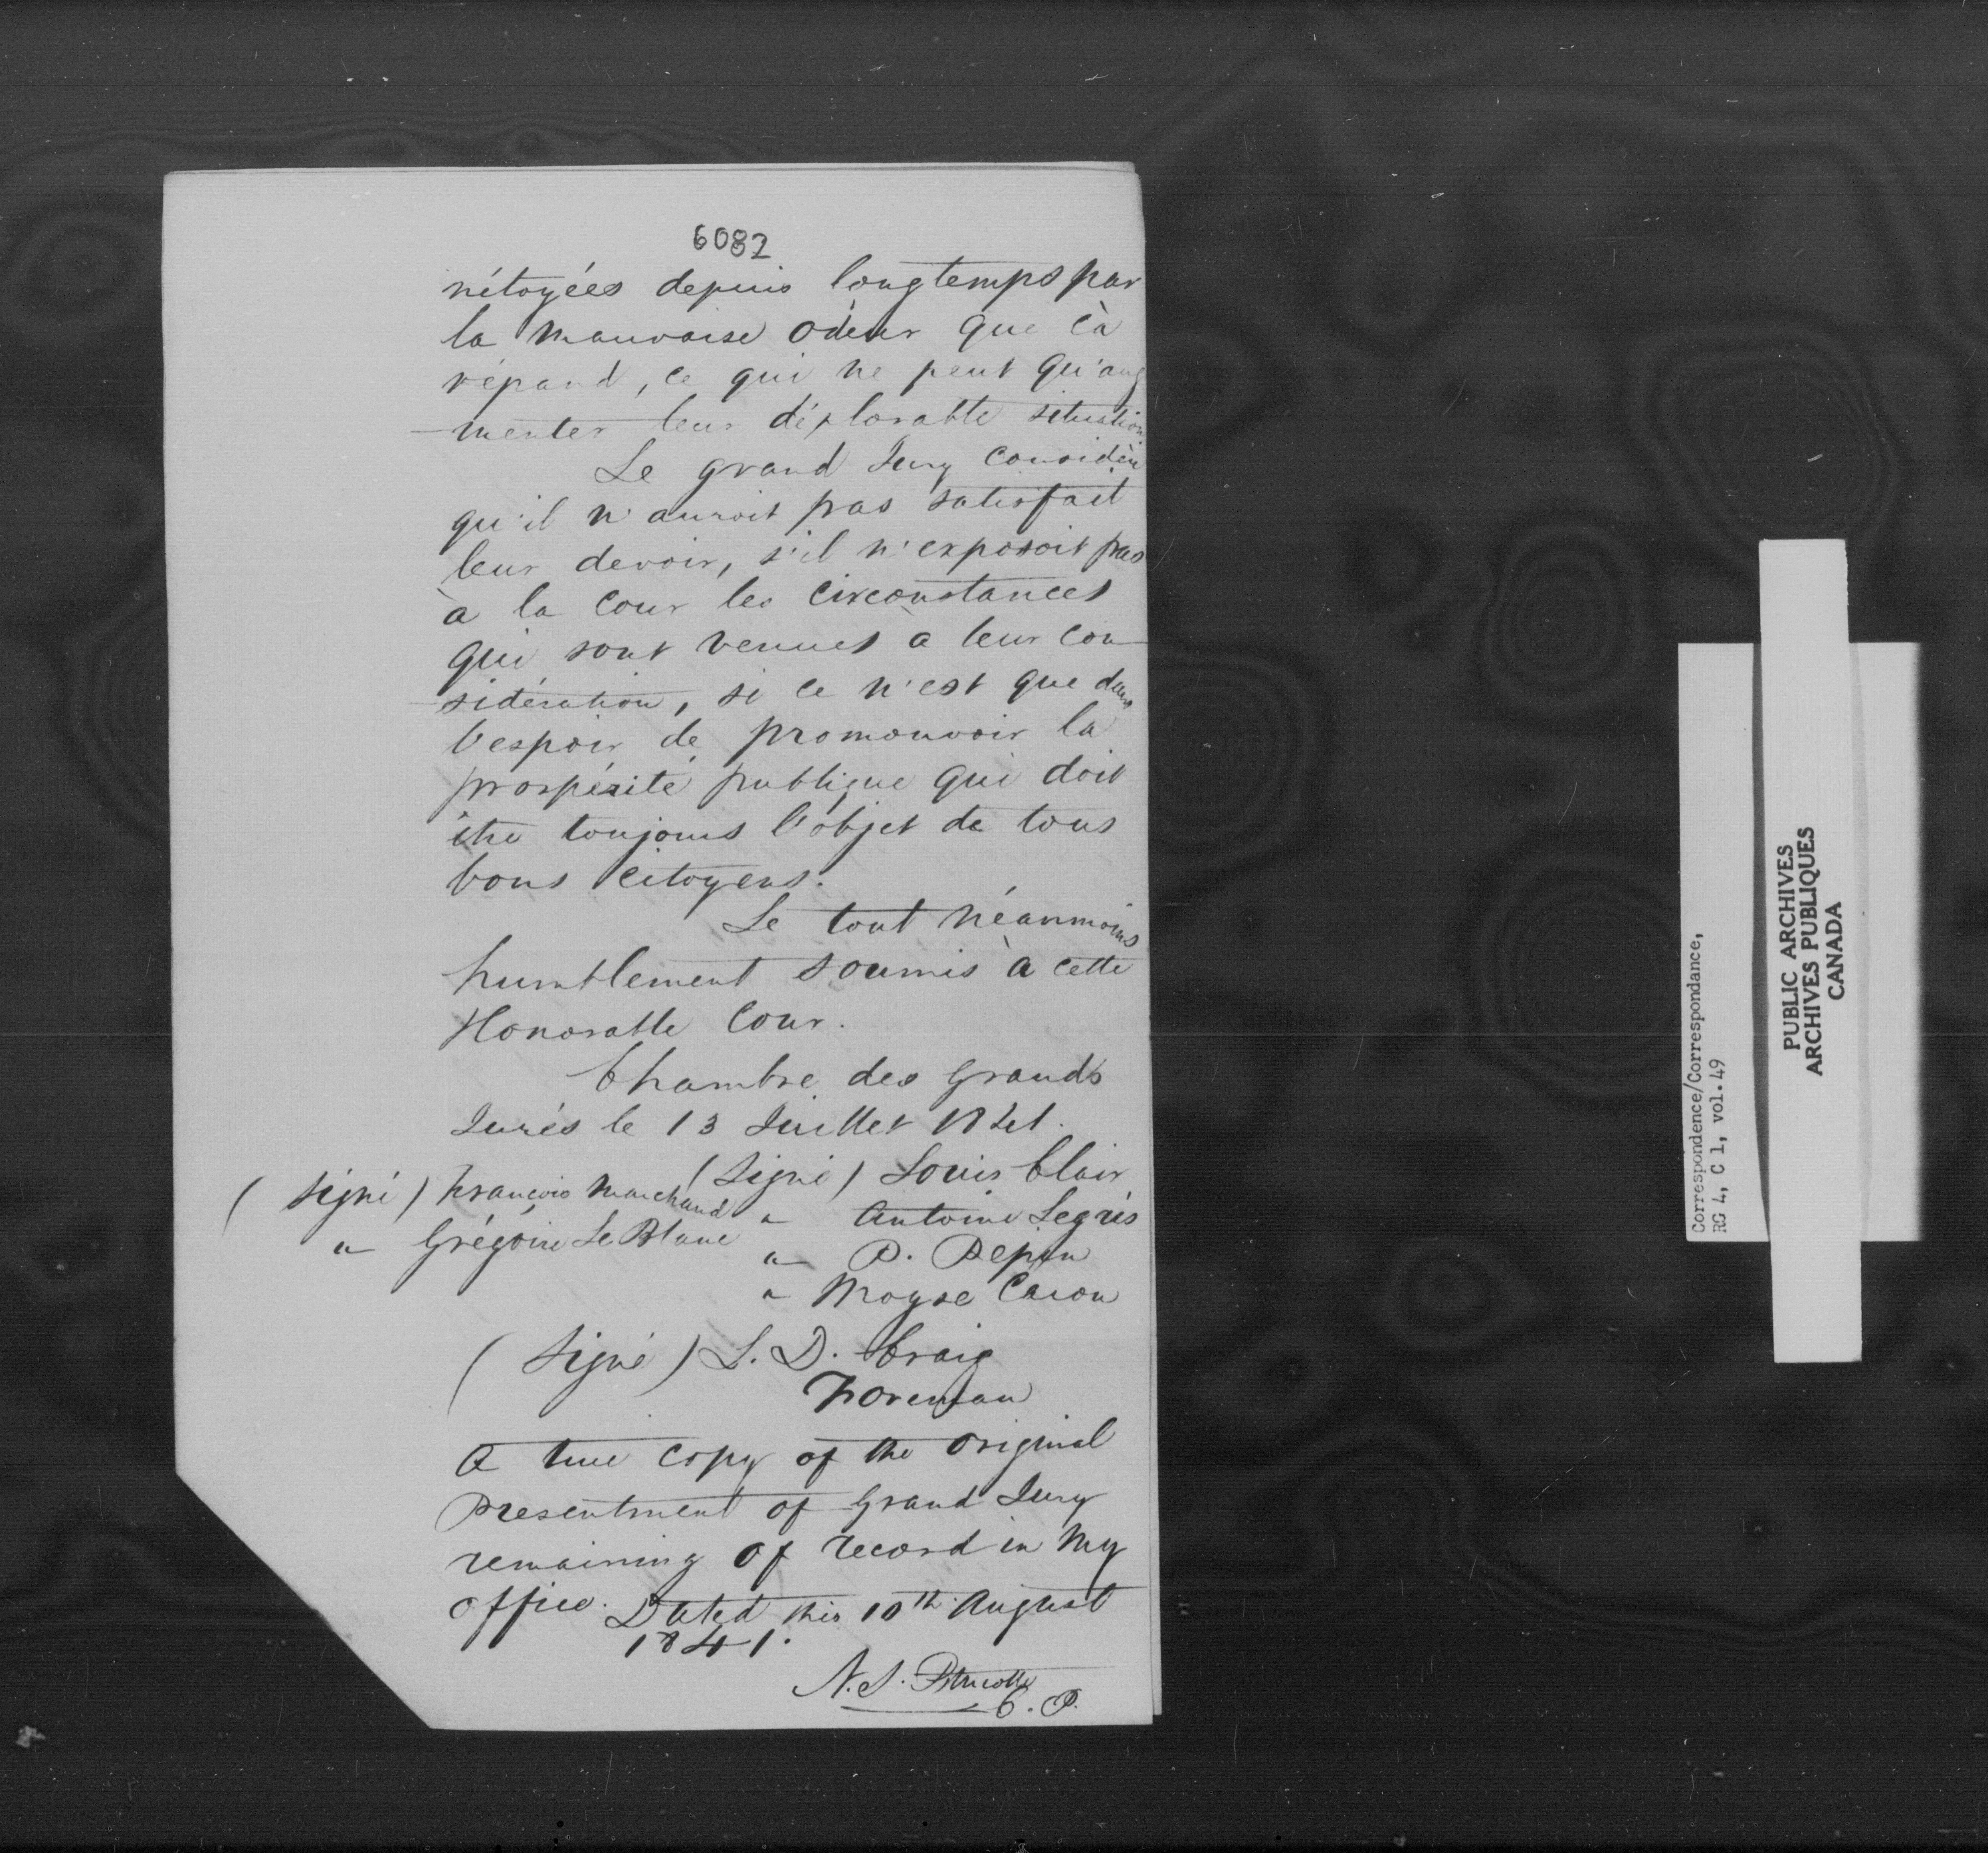 6082
nétoyées depuis longtemps par
la mauvaise odeur que çà
répand, ce qui ne peut qu'aug
-menter leur déplorable situation.
Le grand Jury considère
qu'il n'auroit pas satisfait
leur devoir, s'il n'exposoit pas
à la Cour les circonstances
qui sont venues à leur con
-sidération, si ce n'est que dans
l'espoir de promouvoir la
prospérité publique qui doit
être toujours l'objet de tous
bons citoyens.
Le tout néanmoins
humblement soumis à cette
Honorable Cour.
Chambre des Grands
Jurés le 13 Juillet 1841.
(Signé) Louis Clair
(Signé) François Marchand
" Antoine Legris
" Grégoire Le Blanc
" P. Pepin
" Moyse Caron
(Signé) L. D. Craig
Foreman
A true copy of the original
Presentment of Grand Jury
remaining of record in my
office. Dated this 10th August
1841.
N. S.
C. P.
Correspondence/Correspondance,
RG 4, C 1, vol. 49
PUBLIC ARCHIVES
ARCHIVES PUBLIQUES
CANADA